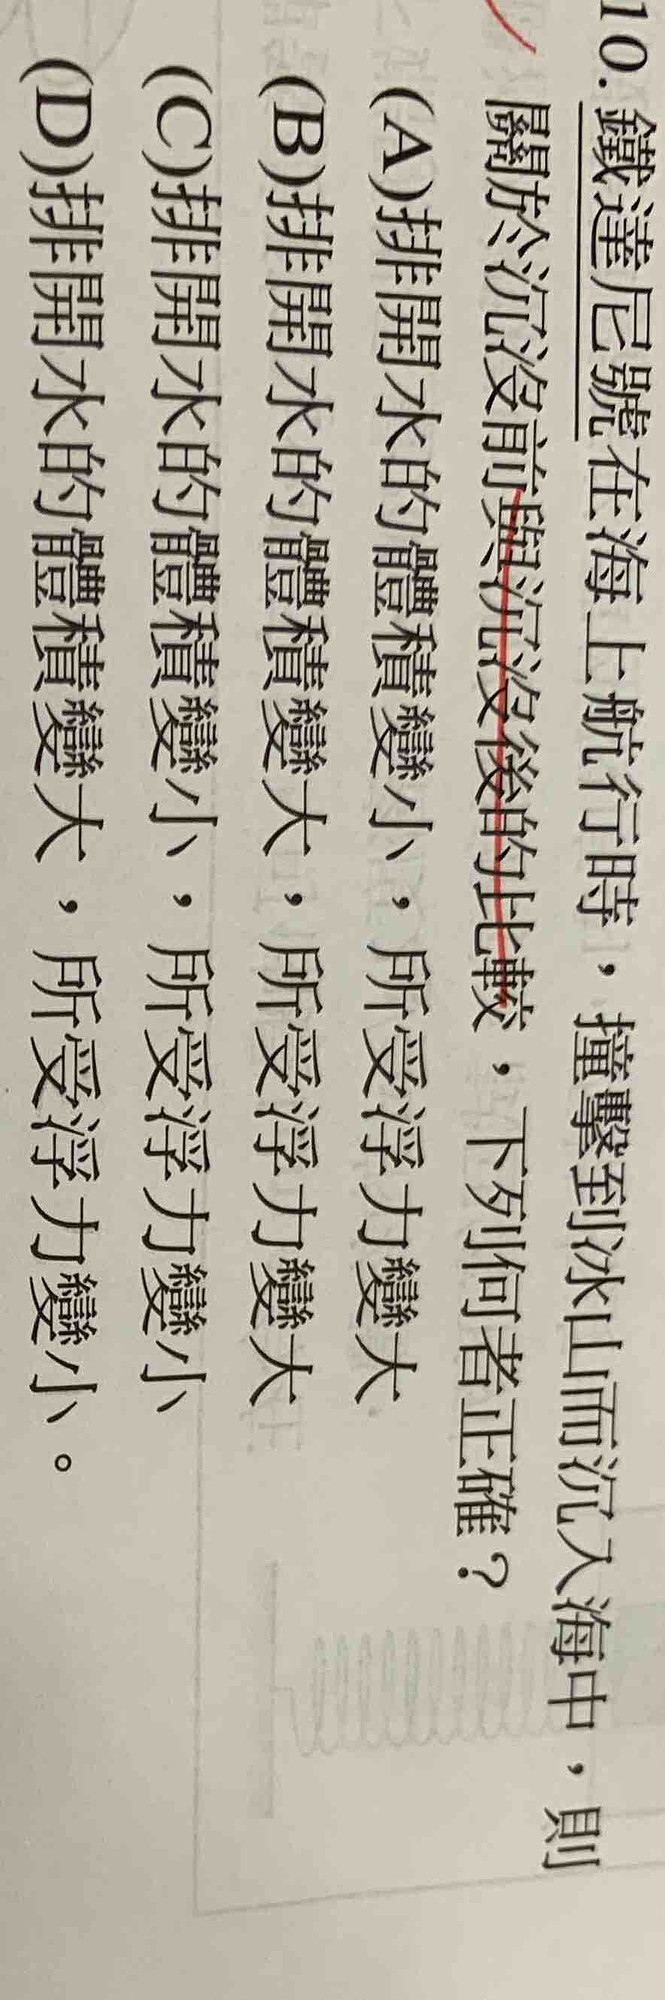 10.鐵達尼號在海上航行時，撞擊到冰山而沉入海中，則
關於沉沒前與沉沒後的比較，下列何者正確？
(A)排開水的體積變小，所受浮力變大
(B)排開水的體積變大，所受浮力變大
(C)排開水的體積變小，所受浮力變小
(D)排開水的體積變大，所受浮力變小。